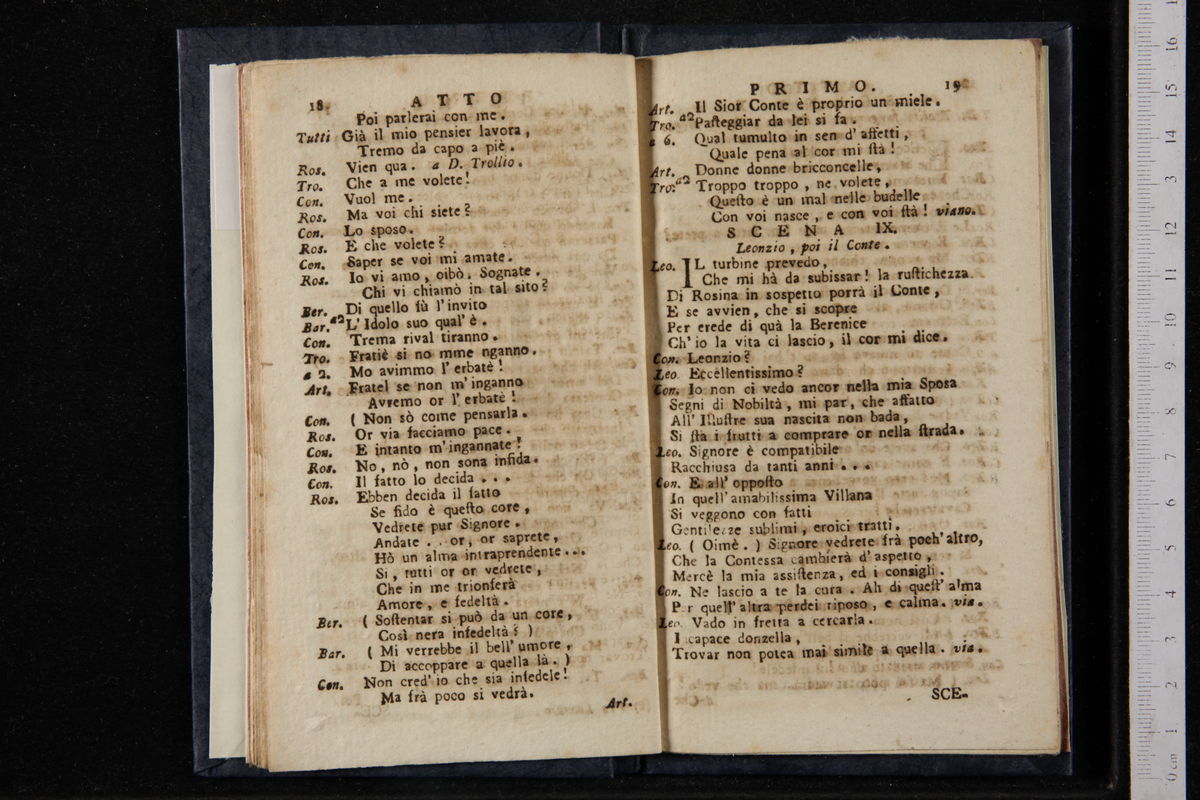 18 ATTO
Poi parlerai con me.
Tutti Già il mio pensier lavora,
Tremo da capo a piè.
Ros. Vien qua. a D. Trollio.
Tro. Che a me volete!
Con. Vuol me.
Ros. Ma voi chi siete?
Con. Lo sposo.
Ros. E che volete?
Con. Saper se voi mi amate.
Ros. Io vi amo, oibò. Sognate.
Chi vi chiamò in tal sito?
Ber. Di quello fù l'invito
Bar. a2 L'Idolo suo qual'è.
Con. Trema rival tiranno.
Tro. Fratiè si no mme nganno.
a 2. Mo avimmo l'erbatè!
Art. Fratel se non m'inganno
Avremo or l'erbatè!
Con. ( Non sò come pensarla.
Ros. Or via facciamo pace.
Con. E intanto m'ingannate!
Ros. No, nò, non sona infida.
Con. Il fatto lo decida ...
Ros. Ebben decida il fatto
Se fido è queſto core,
Vedrete pur Signore.
Andate .. or, or saprete,
Hò un alma intraprendente...
Si, tutti or or vedrete,
Che in me trionferà
Amore, e fedeltà.
Ber. ( Soſtentar si può da un core,
Così nera infedeltà? )
Bar. ( Mi verrebbe il bell'umore,
Di accoppare a quella là. )
Con. Non cred'io che sia infedele!
Ma frà poco si vedrà.
Art.
PRIMO. 19
Art. Il Sior Conte è proprio un miele.
Tro. a2 Paſteggiar da lei si fa.
a 6. Qual tumulto in sen d'affetti,
Quale pena al cor mi ſtà!
Art. Donne donne bricconcelle,
Tro: a2 Troppo troppo, ne volete,
Queſto è un mal nelle budelle
Con voi nasce, e con voi ſtà! viano.
SCENA IX.
Leonzio, poi il Conte.
Leo. IL turbine prevedo,
Che mi hà da subissar! la ruſtichezza
Di Rosina in sospetto porrà il Conte,
E se avvien, che si scopre
Per erede di quà la Berenice
Ch'io la vita ci lascio, il cor mi dice.
Con. Leonzio?
Leo. Eccellentissimo?
Con. Io non ci vedo ancor nella mia Sposa
Segni di Nobiltà, mi par, che affatto
All'Illuſtre sua nascita non bada,
Si ſtà i frutti a comprare or nella ſtrada.
Leo. Signore è compatibile
Racchiusa da tanti anni ...
Con. E all'oppoſto
In quell'amabilissima Villana
Si veggono con fatti
Gentilezze sublimi, eroici tratti.
Leo. ( Oimè. ) Signore vedrete frà poch'altro,
Che la Contessa cambierà d'aspetto,
Mercè la mia assiſtenza, ed i consigli.
Con. Ne lascio a te la cura. Ah di queſt'alma
Per quell'altra perdei riposo, e calma. via.
Leo. Vado in fretta a cercarla.
Incapace donzella,
Trovar non potea mai simile a quella. via.
SCE-